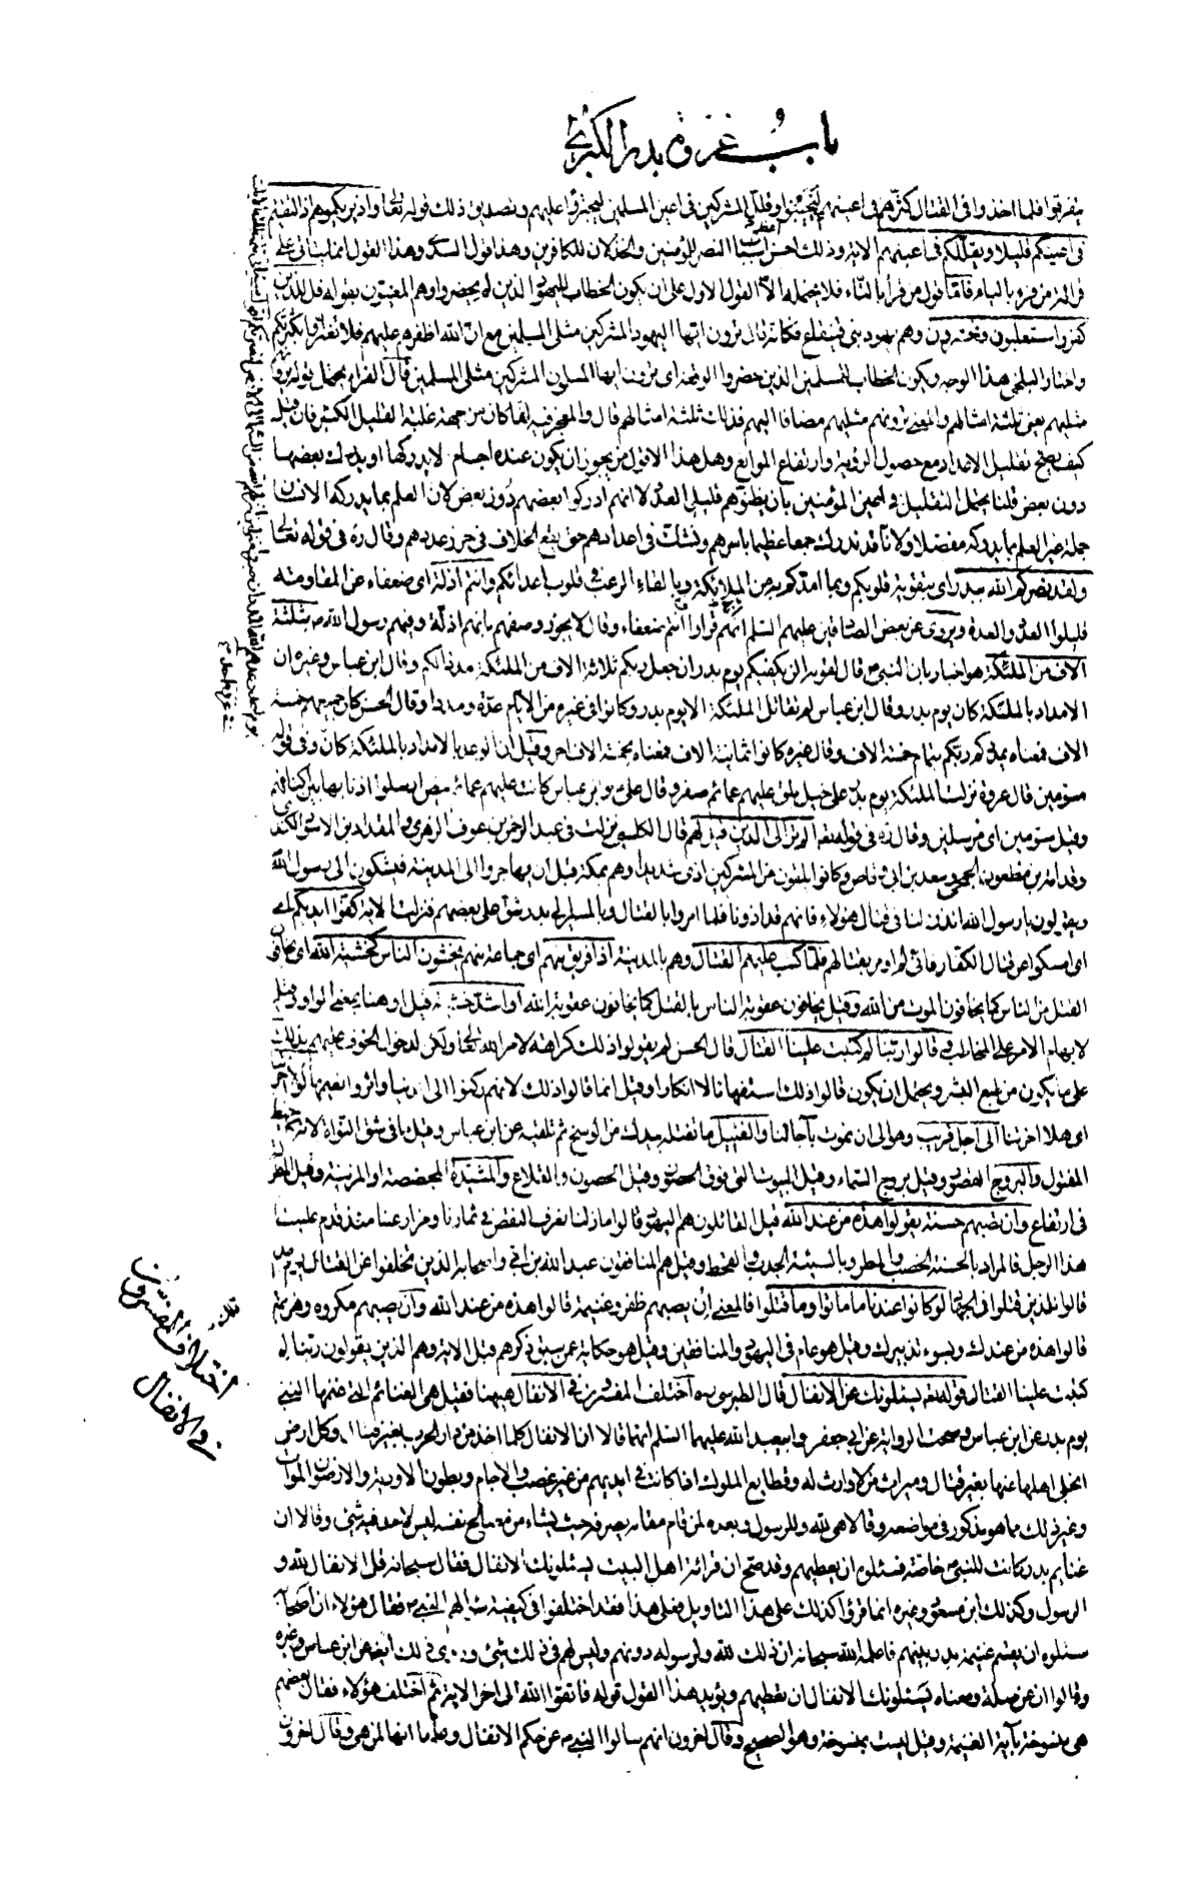 باب غزوة بدر الكبرى
يتفرقوا فلما اخذوا فى القتال كثّرهم فى اعينهم ليجبنوا وقلّل المشركين فى اعين المسلمين ليجترؤا عليهم وتصديق ذلك قوله تعالى واذ يريكموهم اذ التقيتم
فى اعينكم قليلا ويقلّلكم فى اعينهم الاية وذلك احسن اسباب النصر للمؤمنين والخذلان للكافرين وهذا قول السدى وهذا القول انما يتأتى على
قرائة من قرء بالياء فامّا قول من قرأ بالتاء فلا يحتمله الّا القول الاول على ان يكون الخطاب لليهود الذين لم يحضروا وهم المعنيون بقوله قل للذين
كفروا ستغلبون وتحشرون وهم يهود بنى قينقاع فكانه قال ترون ايها اليهود المشركين مثلى المسلمين مع ان الله اظفرهم عليهم فلا تغتروا بكثرتكم
واختار البلخى هذا الوجه ويكون الخطاب للمسلمين الذين حضروا الوقعة اى ترون ايها المسلمون المشركين مثلى المسلمين قال الفراء يحتمل قوله يرونهم
مثليهم يعنى ثلثة امثالهم والمعنى ترونهم مثليهم مضافا اليهم فذلك ثلثة امثالهم قال والمعجز فيه انما كان من جهة غلبة القليل الكثير فان قيل
كيف يصح تقليل الاعداد مع حصول الرؤية وارتفاع الموانع وهل هذا الا قول من يجوز ان يكون عنده اجسام لا يدركها او يدرك بعضها
دون بعض قلنا يحتمل التقليل فى اعين المؤمنين بان يظنّوهم قليلى العدد لا انهم ادركوا بعضهم دون بعض لان العلم بما يدركه الانسان
جملة غير العلم بما يدركه مفصلا ولانا قد ندرك جمعا عظيما باسرهم ونشك فى اعدادهم حتى يقع الخلاف فى حزر عددهم وقال ره فى قوله تعالى
ولقد نصركم الله ببدر اى بتقوية قلوبكم وبما امدكم به من الملائكة وبالقاء الرعب فى قلوب اعدائكم وانتم اذلة اى ضعفاء عن المقاومة
قليلوا العدد والعدة ويروى عن بعض الصادقين عليهم السلم انه قرأ وانتم ضعفاء وقال لا يجوز وصفهم بانهم اذلّة وفيهم رسول الله ص بثلثة
الاف من الملئكة هو اخبار بان النبى ص قال لقومه الن يكفيكم يوم بدر ان جعل ربكم ثلاثة الاف من الملئكة مددا لكم وقال ابن عباس وغيره ان
الامداد بالملئكة كان يوم بدر وقال ابن عباس لم تقاتل الملئكة الا يوم بدر وكانوا فى غيره من الايام عدّة ومددا وقال الحسن كان جميعهم خمسة
الاف فمعناه يمددكم ربكم بتمام خمسة الاف وقال غيره كانوا ثمانية الاف فمعناه بخمسة الاف اخر وقيل ان الوعد بالامداد بالملئكة كان وفى قوله
مسومين قال عروة نزلت الملئكة يوم بدر على خيل بلق عليهم عمائم صفر وقال على ع وابن عباس كانت عليهم عمائم بيض ارسلوا اذنابها بين اكتافهم
وقيل مسومين اى مرسلين وقال ره فى قوله تعالى الم تر الى الذين قيل لهم قال الكلبى نزلت فى عبد الرحمن بن عوف الزهرى والمقداد بن الاسود الكندى
وقدامة بن مظعون الجمحى وسعد بن ابى وقاص وكانوا يلقون من المشركين اذى شديدا وهم بمكة قبل ان يهاجروا الى المدينة فيشكون الى رسول الله
ويقولون يا رسول الله ائذن لنا فى قتال هؤلاء فانهم قد اذونا فلما امروا بالقتال وبالمسير الى بدر شق على بعضهم فنزلت الاية كفوا ايديكم
اى امسكوا عن قتال الكفار فانى لم اومر بقتالهم فلما كتب عليهم القتال وهم بالمدينة اذا فريق منهم اى جماعة منهم يخشون الناس كخشية الله اى يخافون
القتل من الناس كما يخافون الموت من الله وقيل يخافون عقوبة الناس بالقتل كما يخافون عقوبة الله او اشد خشية قيل او هنا بمعنى الواو وقيل
لابهام الامر على المخاطب قالوا ربنا لم كتبت علينا القتال قال الحسن لم يقولوا ذلك كراهة لامر الله تعالى ولكن لدخول الخوف عليهم بذلك
على ما يكون من طبع البشر ويحتمل ان يكون قالوا ذلك استفهاما لا انكارا وقيل انما قالوا ذلك لانهم ركنوا الى الدنيا واثروا نعيمها لولا اخرتنا
اى هلا اخرتنا الى اجل قريب وهو الى ان نموت باجالنا والفتيل ما تفتله بيدك من الوسخ ثم تلقيه عن ابن عباس وقيل ما فى شق النواة لانه كالخيط
المفتول والبروج القصور وقيل بروج السماء وقيل البيوت التى فوق الحصون وقيل الحصون والقلاع والمشيّدة المجصصة او المزينة وقيل المطولة
فى ارتفاع وان تصبهم حسنة يقولوا هذه من عند الله قيل القائلون هم اليهود قالوا ما زلنا نعرف النقص فى ثمارنا ومزارعنا منذ قدم علينا
هذا الرجل فالمراد بالحسنة الخصب والمطر وبالسيئة الجدب والقحط وقيل هم المنافقون عبد الله بن ابى واصحابه الذين تخلفوا عن القتال يوم احد
قالوا للذين قتلوا فى الجهاد لو كانوا عندنا ما ماتوا وما قتلوا فالمعنى ان يصبهم ظفر وغنيمة قالوا هذه من عند الله وان تصبهم مكروه وهزيمة
قالوا هذه من عندك وبسوء تدبيرك وقيل هو عام فى اليهود والمنافقين وقيل هو حكاية عمن سبق ذكرهم قبل الاية وهم الذين يقولون ربنا لم
كتبت علينا القتال قوله تعالى يسئلونك عن الانفال قال الطبرسى ره اختلف المفسرون فى الانفال ههنا فقيل هى الغنائم التى غنمها النبى
يوم بدر عن ابن عباس وصحت الرواية عن ابى جعفر وابى عبد الله عليهما السلم انهما قالا ان الانفال كلما اخذ من دار الحرب بغير قتال وكل ارض
انجلى اهلها عنها بغير قتال وميراث من لا وارث له وقطايع الملوك اذا كانت فى ايديهم من غير غصب والاجام وبطون الاودية والارضون الموات
وغير ذلك مما هو مذكور فى مواضعه وقالا هى لله وللرسول وبعده لمن قام مقامه يصرفه حيث يشاء من مصالح نفسه ليس لاحد فيه شئ وقالا ان
غنايم بدر كانت للنبى ص خاصة فسئلوه ان يعطيهم وقد صح ان قرائة اهل البيت يسئلونك الانفال فقال سبحانه قل الانفال لله و
الرسول وكذلك ابن مسعود وغيره انما قرؤا كذلك على هذا التاويل فعلى هذا فقد اختلفوا فى كيفية سؤالهم النبى ص فقال هؤلاء ان اصحابه
سئلوه ان يقسم غنيمة بدر بينهم فاعلم الله سبحانه ان ذلك لله ولرسوله دونهم وليس لهم فى ذلك شئ وروى ذلك ايضا عن ابن عباس وغيره
وقالوا ان عن صلة ومعناه يسئلونك الانفال ان تعطيهم ويؤيد هذا القول قوله فاتقوا الله الى اخر الاية ثم اختلف هؤلاء فقال بعضهم
هى منسوخة بآية الغنيمة وقيل ليست بمنسوخة وهو الصحيح وقال اخرون انهم سالوا النبى ص عن حكم الانفال وعلمها انها لمن هى وقال اخرون
اختلاف المفسرون
فى الانفال